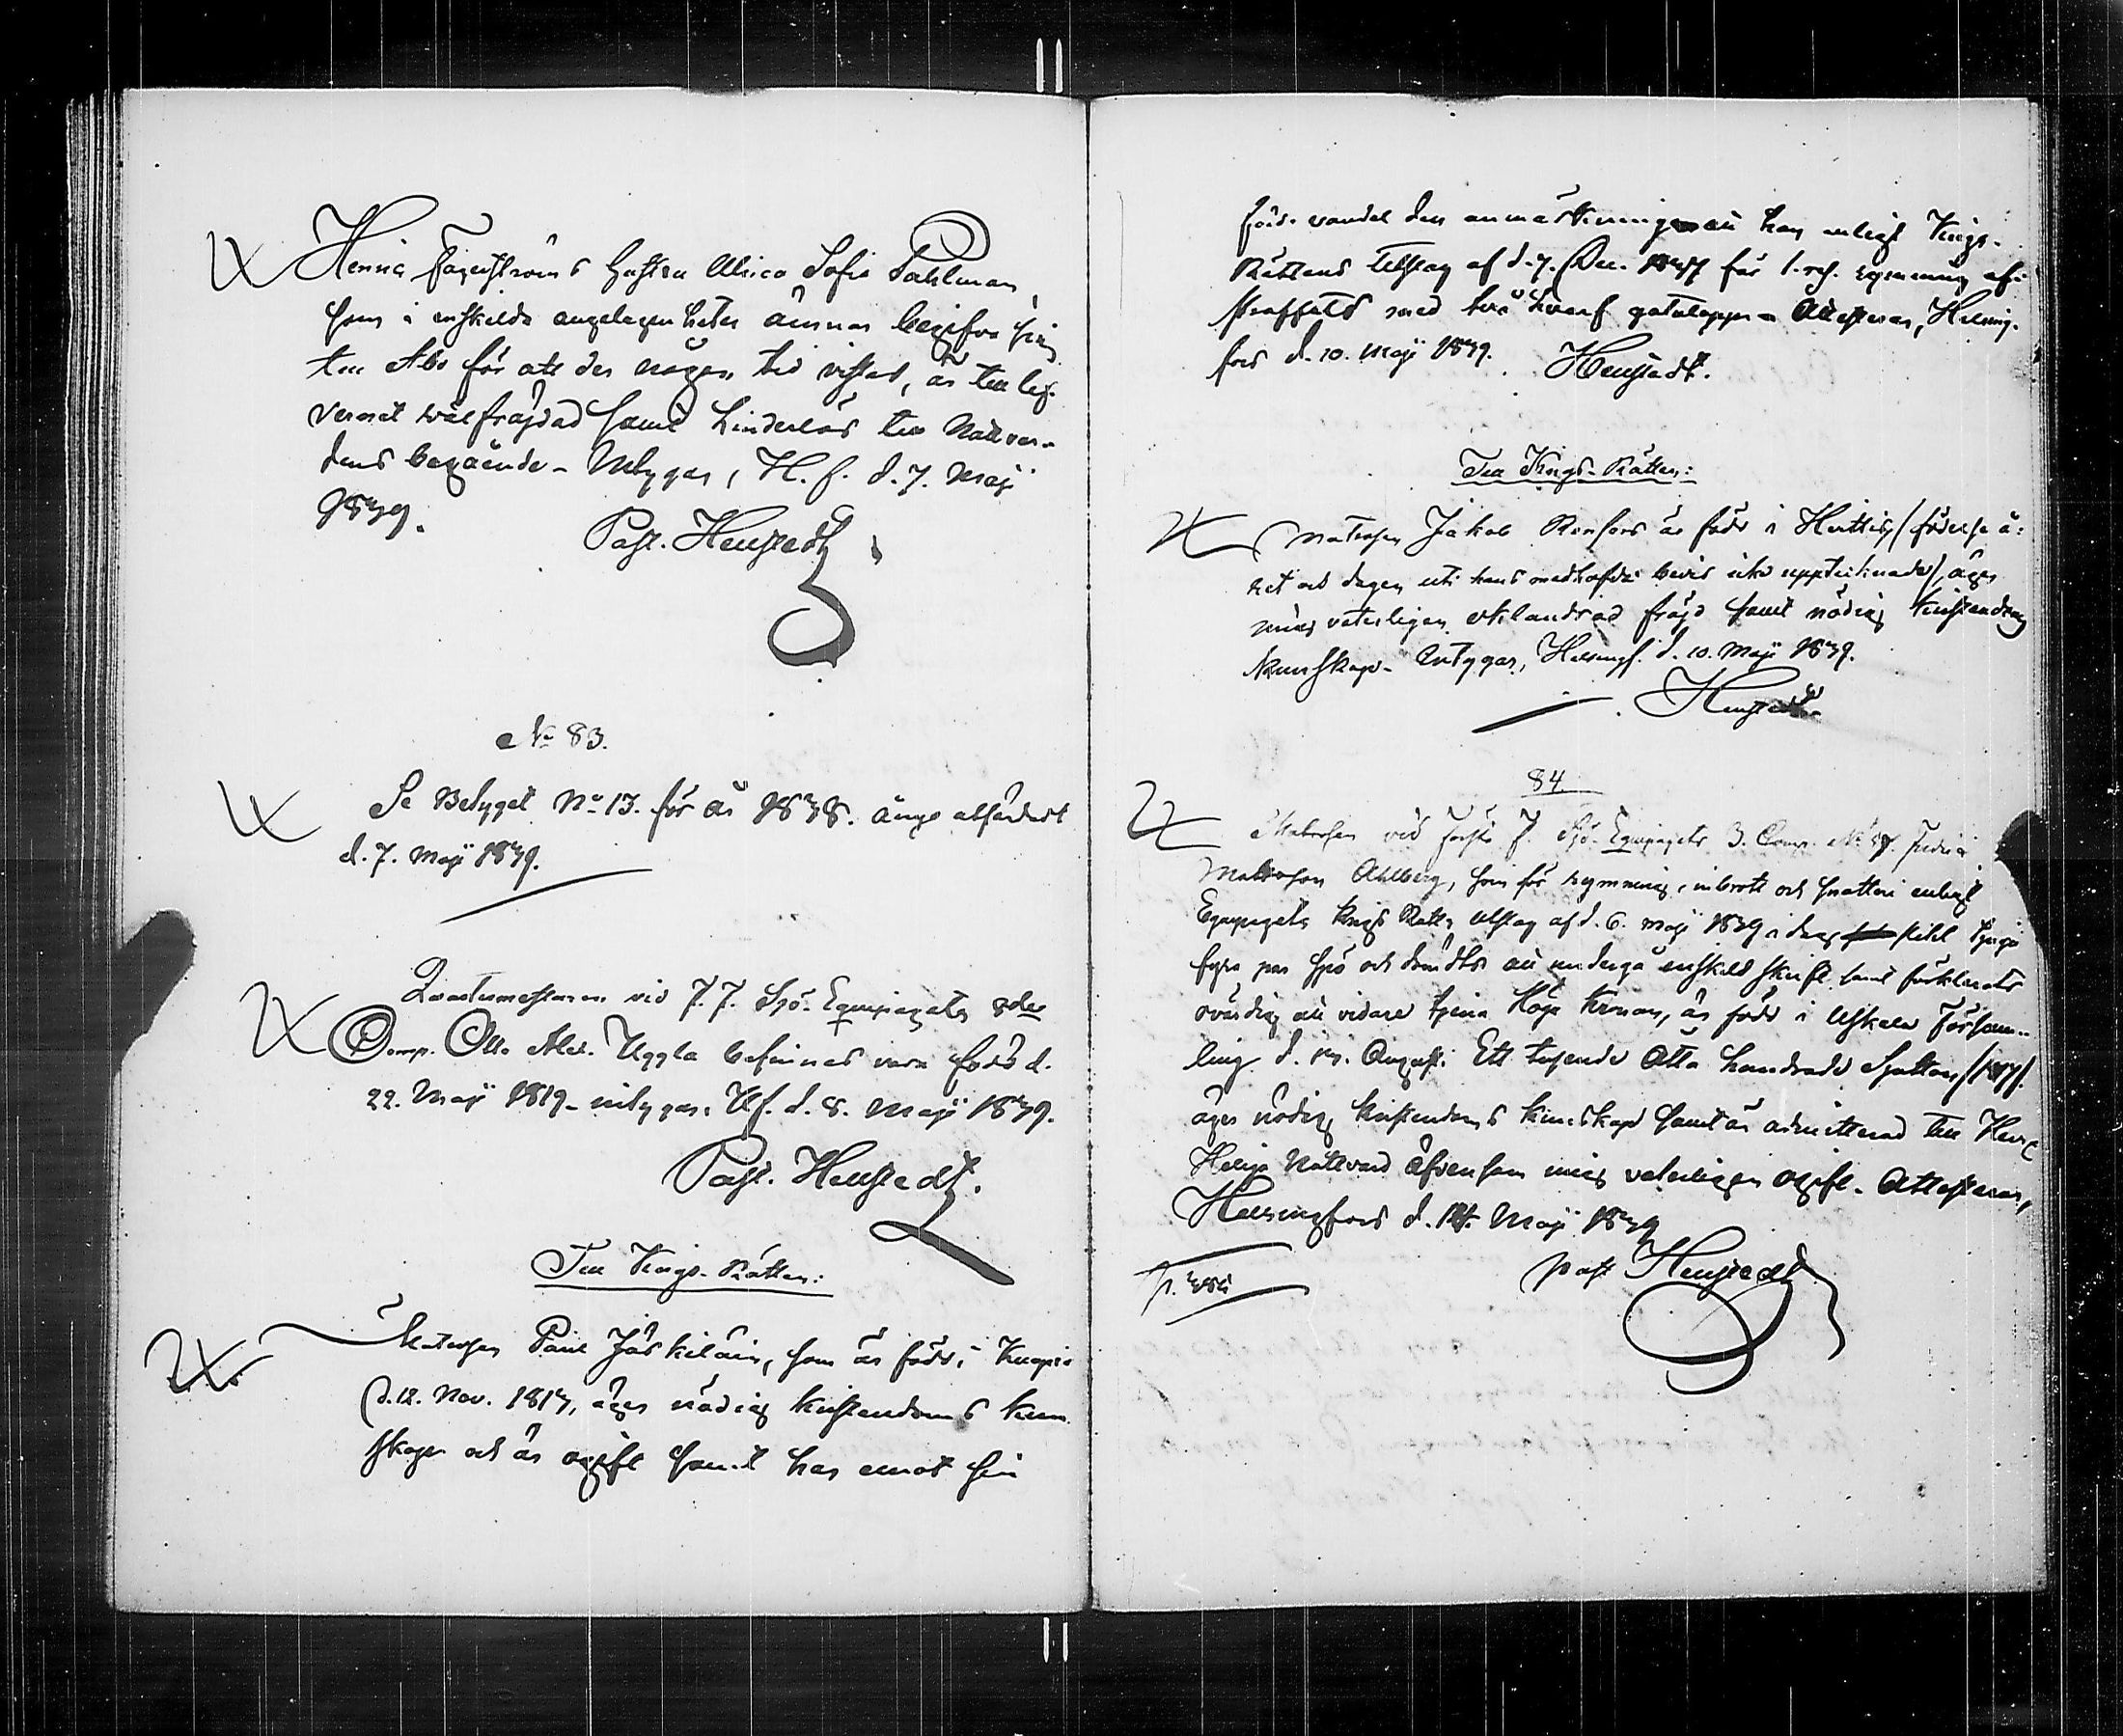 Henric Fagerströms hustru Ulrica Sofia Pahlman,
som i enskilda angelägenheter ämnar begifva sig
till Åbo för att der någon tid vistas, är till lef-
vernet välfräjdad samt hinderlös till Nattvar-
dens begående. Intygar, H.f. d. 7. Maji
1839.
Past. Henstedt
No 83.
Se Betyget No 13. för år 1838. ånyo utfärdadt
d. 7. Maji 1839.
Quartermästaren vid F. F. Sjö-Equipagets
Comp. Otto Alex. Uggla befinnes vara född d.
22. Maji 1819. intygar. Hf. d. 8. Maji 1839.
Past. Henstedt.
Till Krigs-Rätten:
Matrosen Paul Jääskeläin, som är född i Kuopio
d. 12. Nov. 1817, äger nödig kristendoms kun-
skap och är ogift samt har emot sin
före vandel den anmärkningen att han enligt Krigs-
Rättens Utslag af d. 7. Dec. 1837 för 1. rymning af-
straffats med två hvarf gatulopp. Attesterar, Helsing-
fors d. 10. Maji 1839. Henstedt.
Till Krigs-Rätten:
Matrosen Jakob Renfors är född i Hvittis (födelse å-
ret och dagen uti hans medhafda bevis icke upptecknade), äger
mig veterligen oklandrad fräjd samt nödig kristendoms
kunskap. Intygar, Helsingf. d. 10. Maji 1839.
Henstedt.
84.
Matrosen vid Första F. Sjö-Equipagets 3. Comp. No Fredric
Matrosen Ahlberg, som för rymning, inbrott och snatteri enligt
Equipagets Krigs Rätts utslag af d. 6. Maji 1839 i dag slitit tjugu
fyra par spö och dömdts att undergå enskild skrift samt förklarats
ovärdig att vidare tjena Höga Kronan, är född i Uskela Försam-
ling d. Augusti Ett tusende Åtta hundrade Sjutton (1817).
äger nödig kristendoms kunskap samt är admitterad till Herrens
Heliga Nattvard äfvensom mig veterligen ogift. Attesterar,
Helsingfors d. 14. Maji 1839
past Henstedt